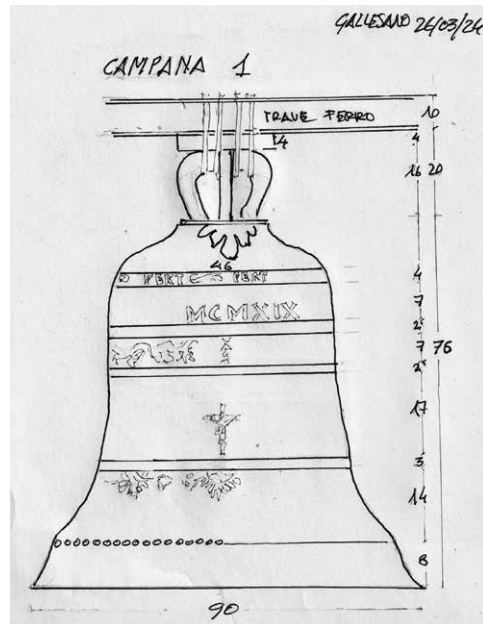 GALLESANO 26/03/24
CAMPANA 1
TRAVE FERRO
10
4
4
16 20
46
4
PERT
PERT
7
MCMXIX
2
7 76
2
17
3
14
8
90